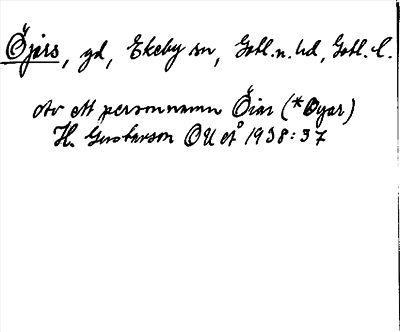 Öjars, gd, Ekeby sn, Gotl. n. hd, Gotl. l.
Av ett personnamn Öiar (*Øyar)
H. Gustavson OUÅ 1938:37